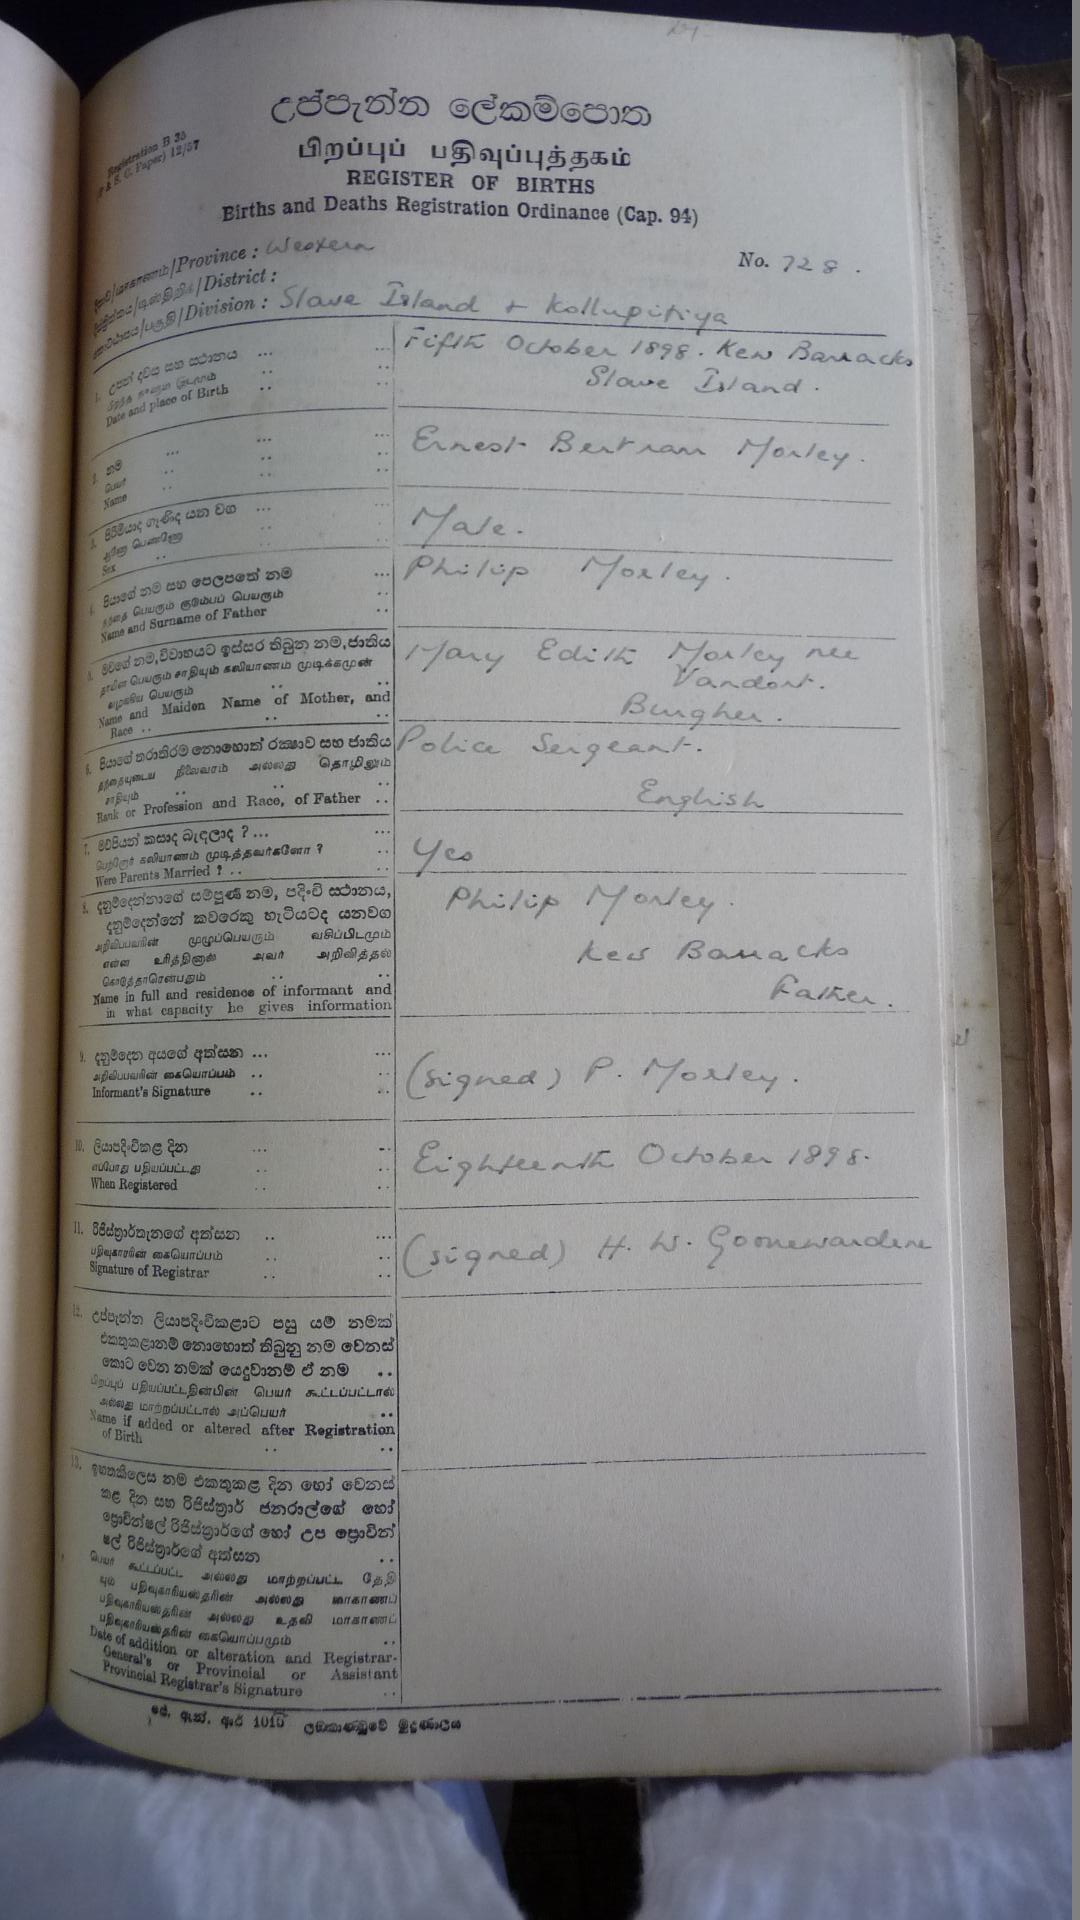 Registration B 35
(P & S. C. Paper) 12/57
උප්පැන්න ලේකම්පොත
பிறப்புப் பதிவுப்புத்தகம்
REGISTER OF BIRTHS
Births and Deaths Registration Ordinance (Cap. 94)
No. 728.
/Province : Western
/District :
/Division : Slave Island + Kollupitiya
1. උපන් දවස සහ ස්ථානය ... ...
Date and place of Birth .. ..
Fifth October 1898. Kew Barracks
Slave Island.
2. නම ... ... ...
பெயர் .. .. ..
Name .. .. ..
Ernest Bertram Morley.
3. පිරිමියාද ගැණිද යන වග ... ...
ஆணோ பெண்ணோ
Sex .. .. ..
Male.
4. පියාගේ නම සහ පෙලපතේ නම ...
தந்தை பெயரும் குடும்பப் பெயரும் ..
Name and Surname of Father ..
Philip Morley.
5. මවගේ නම, විවාහයට ඉස්සර තිබුන නම, ජාතිය
தாயின் பெயரும் சாதியும் கலியாணம் முடிக்கமுன்
வழங்கிய பெயரும் .. ..
Name and Maiden Name of Mother, and
Race .. .. ..
Mary Edith Morley nee
Vandort.
Burgher.
6. පියාගේ තරාතිරම නොහොත් රක්ෂාව සහ ජාතිය
தந்தையுடைய நிலைவரம் அல்லது தொழிலும்
சாதியும் .. .. ..
Rank or Profession and Race, of Father ..
Police Sergeant.
English
7. මව්පියන් කසාද බැඳලාද ? ... ...
பெற்றோர் கலியாணம் முடித்தவர்களோ ? ..
Were Parents Married ? .. ..
Yes
8. දනුම්දෙන්නාගේ සම්පූණි නම, පදිංචි ස්ථානය,
දනුම්දෙන්නේ කවරෙකු හැටියටද යනවග
அறிவிப்பவரின் முழுப்பெயரும் வசிப்பிடமும்
என்ன உரித்தினால் அவர் அறிவித்தல்
கொடுத்தாரென்பதும் .. ..
Name in full and residence of informant and
in what capacity he gives information
Philip Morley.
Kew Barracks
Father.
9. දනුම්දෙන අයගේ අත්සන ... ...
அறிவிப்பவரின் கையொப்பம் .. ..
Informant's Signature .. ..
(signed) P. Morley.
10. ලියාපදිංචිකළ දින ... ...
எப்போது பதியப்பட்டது .. ..
When Registered .. ..
Eighteenth October 1898.
11. රිජිස්ත්‍රාර්තැනගේ අත්සන .. ...
பதிவுகாரரின் கையொப்பம் .. ..
Signature of Registrar .. ..
(signed) H. W. Goonewardene
12. උප්පැන්න ලියාපදිංචිකළාට පසු යම් නමක්
එකතුකළානම් නොහොත් තිබුනු නම වෙනස්
කොට වෙන නමක් යෙදුවානම් ඒ නම ..
பிறப்புப் பதியப்பட்டதின்பின் பெயர் கூட்டப்பட்டால்
அல்லது மாற்றப்பட்டால் அப்பெயர் ..
Name if added or altered after Registration
of Birth .. ..
13. ඉහතකිලෙස නම එකතුකළ දින හෝ වෙනස්
කළ දින සහ රිජිස්ත්‍රාර් ජනරාල්ගේ හෝ
ප්‍රොවින්ෂල් රිජිස්ත්‍රාර්ගේ හෝ උප ප්‍රොවින්
ෂල් රිජිස්ත්‍රාර්ගේ අත්සන ..
பெயர் கூட்டப்பட்ட அல்லது மாற்றப்பட்ட தேதி
யும் பதிவுகாரியஸ்தரின் அல்லது மாகாணப்
பதிவுகாரியஸ்தரின் அல்லது உதவி மாகாணப்
பதிவுகாரியஸ்தரின் கையொப்பமும் ..
Date of addition or alteration and Registrar-
General's or Provincial or Assistant
Provincial Registrar's Signature ..